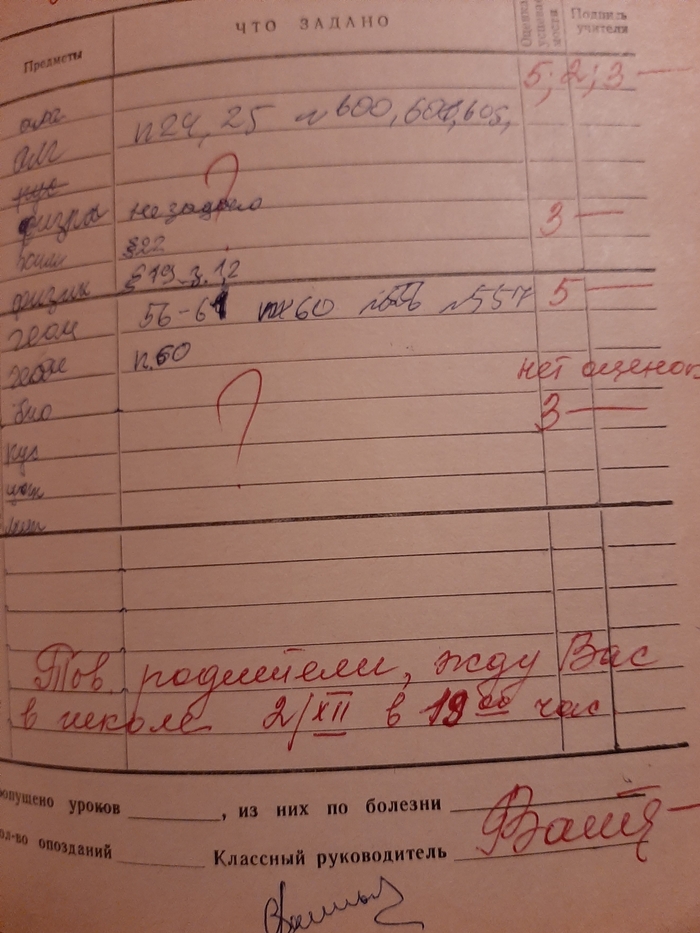 Предметы ЧТО ЗАДАНО Оценка успеваемости Подпись учителя
5; 2; 3
алг
алг п 24, 25 № 600, 605,
рус ?
физра не задано
хим §22 3
физик § 19 з. 1,2
геом 56-61 60 № 557 5
п. 60
био нет оценок
? 3
Тов. родители, жду Вас
в школе 2/XII в 19 00 час
опущено уроков , из них по болезни
ол-во опозданий Классный руководитель